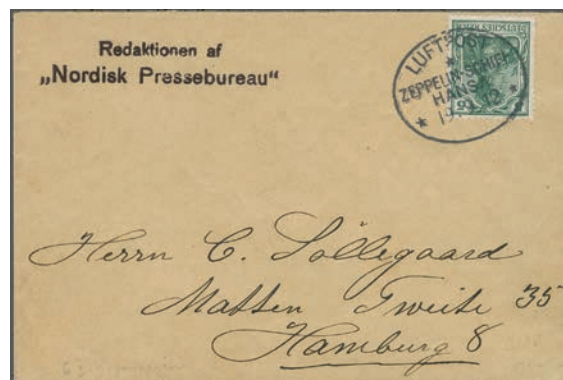 Redaktionen af
„Nordisk Pressebureau“
LUFTPOST
ZEPPELIN-SCHIFF
HANSA
19
Herrn C. Söllegaard
Matten Tweite 35
Hamburg 8